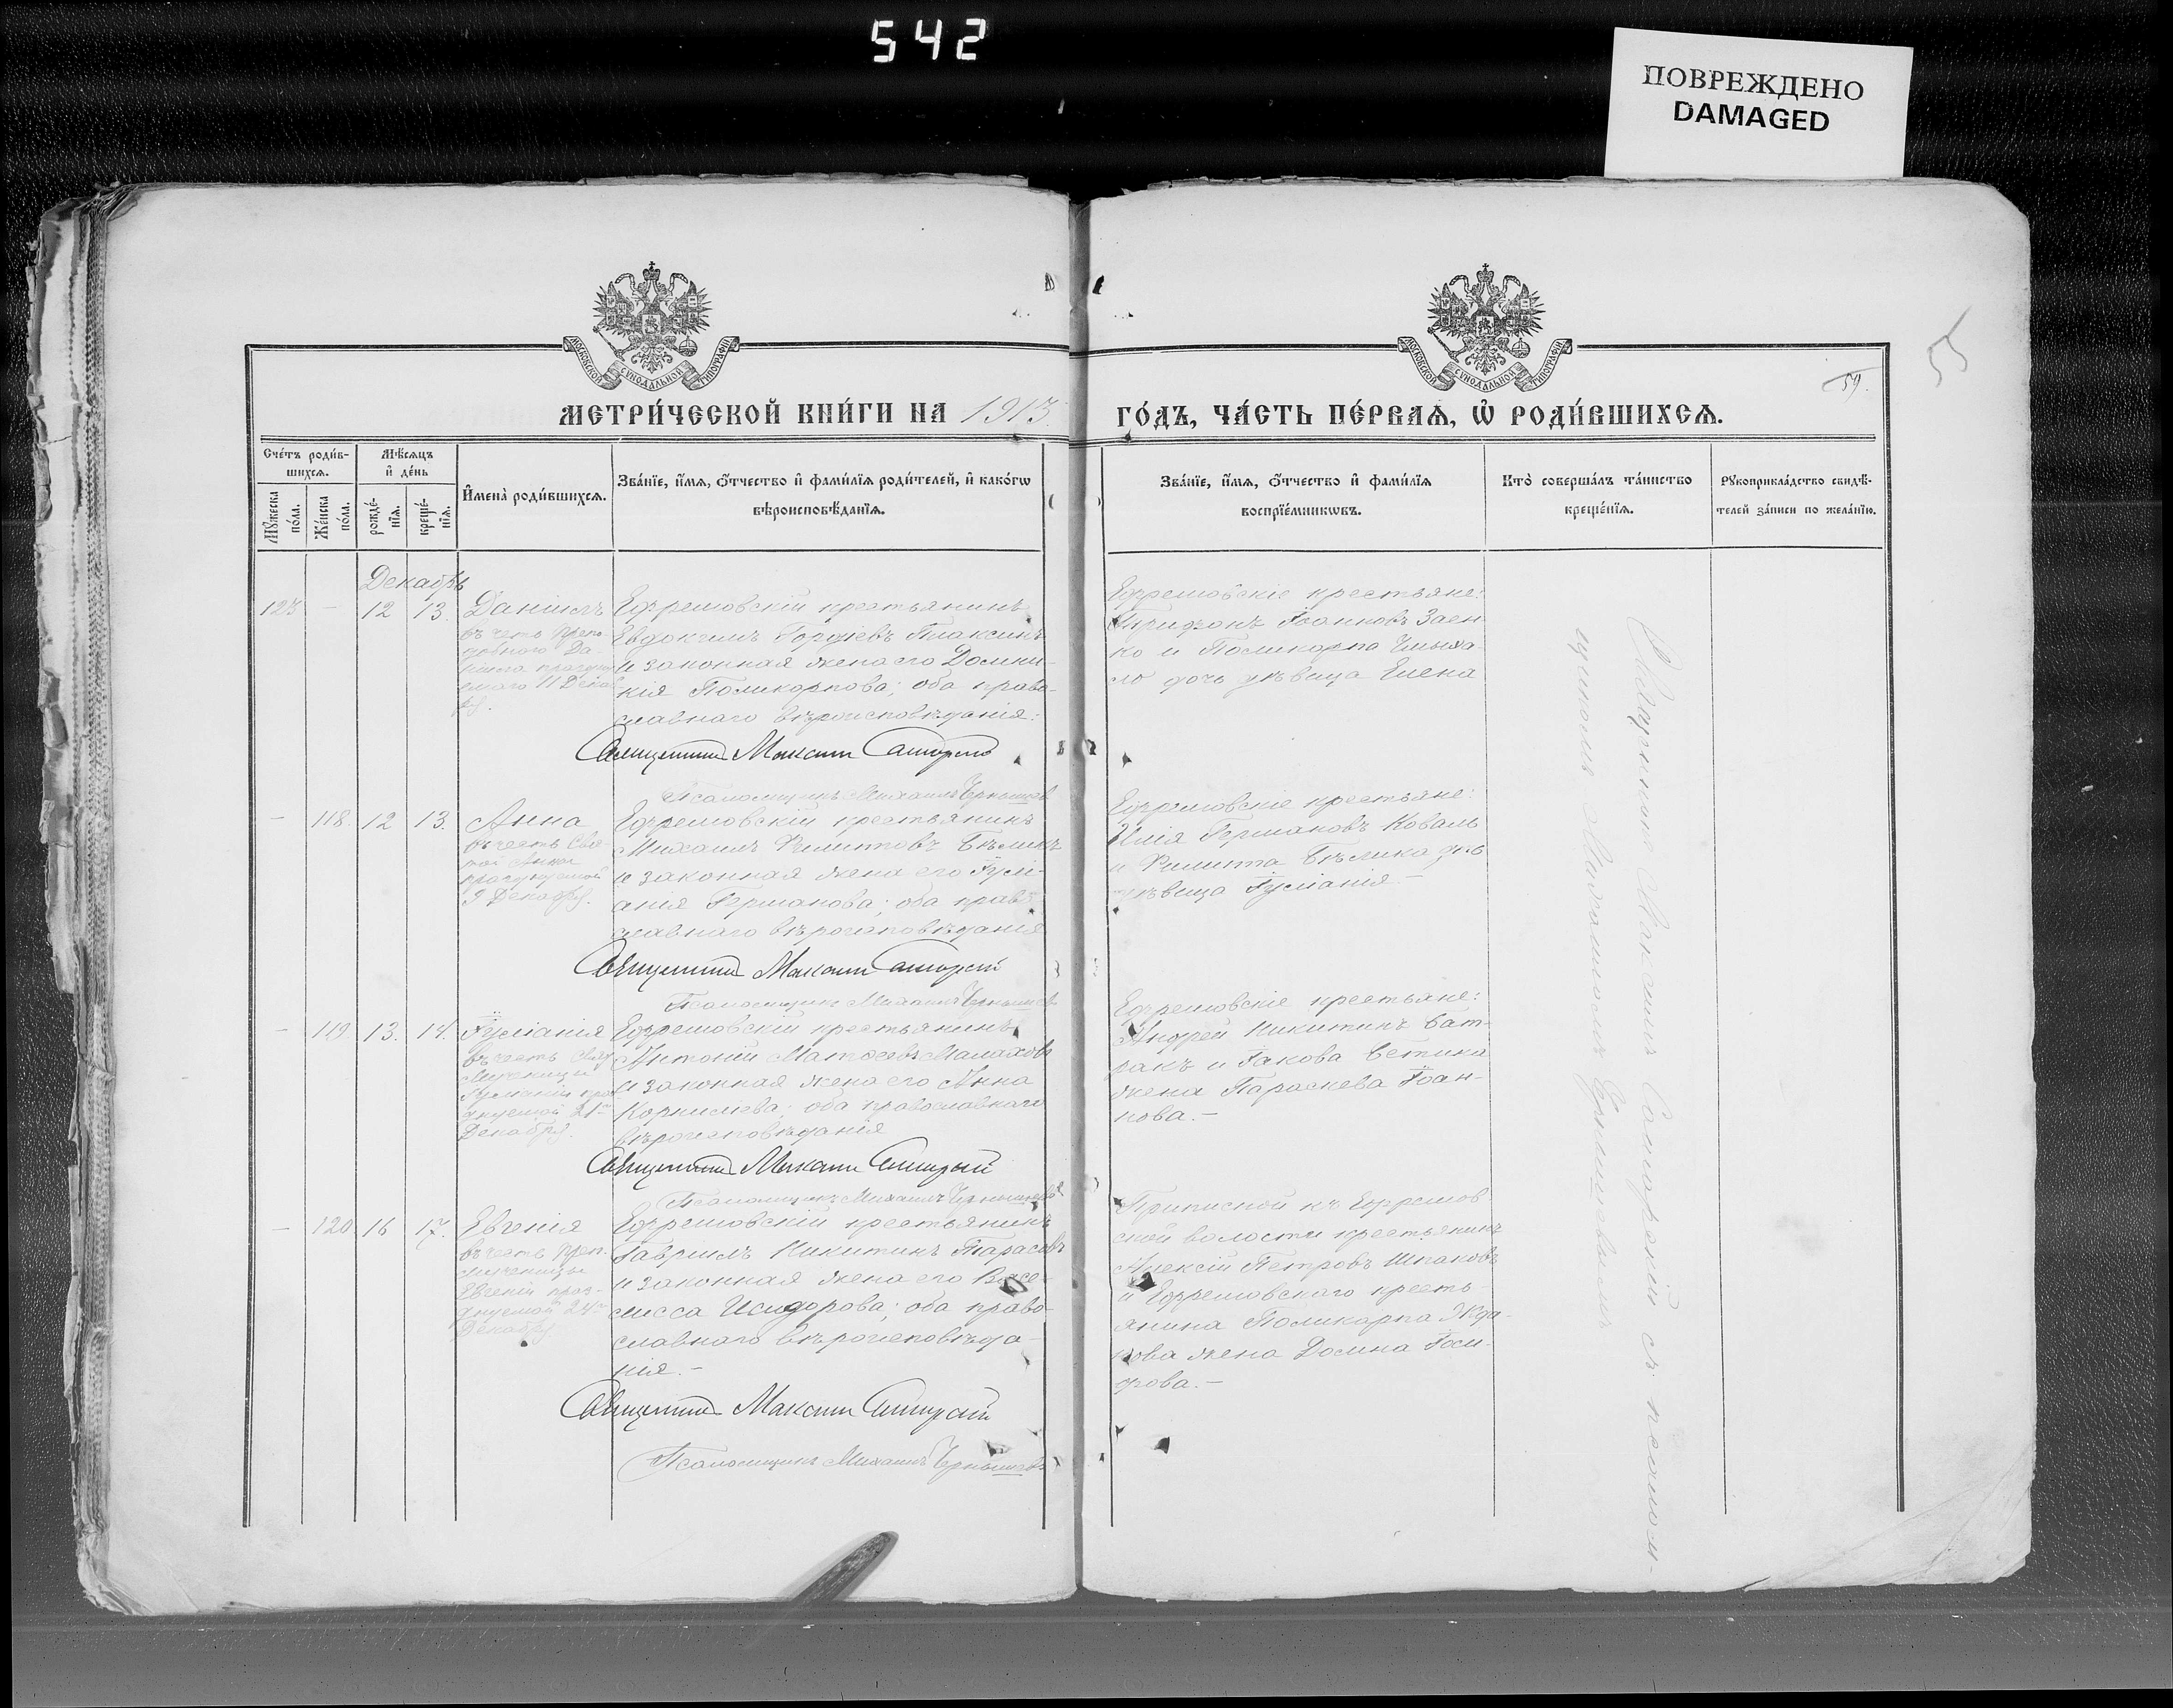 542
ПОВРЕЖДЕНО
DAMAGED
55
59.
МОСКОВСКОЙ СѴНОДАЛЬНОЙ ТИПОГРАФІИ
МОСКОВСКОЙ СѴНОДАЛЬНОЙ ТИПОГРАФІИ
МЕТРИ́ЧЕСКОЙ КНИ́ГИ НА 1913
ГО́ДЪ, ЧА́СТЬ ПЕ́РВАЯ, Ѽ РОДИ́ВШИХСЯ.
Сче́тъ роди́в-
шихся.
Мѣ́сяцъ
и҆ де́нь
Мꙋ́жеска
по́ла.
Же́нска
по́ла.
рожде́-
нїя.
креще́-
нїя.
И҆мена̀ роди́вшихся.
Зва́нїе, и҆́мя, ѻ҆́тчество и҆ фами́лїя роди́телей, и҆ како́гѡ
вѣроисповѣ́данїя.
Зва́нїе, и҆́мя, ѻ҆́тчество и҆ фами́лїя
воспрїе́мникѡвъ.
Кто̀ соверша́лъ та́инство
креще́нїя.
Рꙋкоприкла́дство свидѣ́-
телей за́писи по жела́нїю.
Декабрь
123 - 12 13. Даніилъ
въ честь Препо-
добнаго Да-
ніила праздну
емаго 11 Декаб
ря.
Ефремовскій крестьянинъ
Евдокимъ Гордіевъ Плаксинъ
и законная жена его Домни-
кія Поликарпова; оба право-
славнаго вѣроисповѣданія:
Священникъ Максим
Псаломщикъ Михаилъ Чернышевъ
Ефремовскіе крестьяне:
Трифонъ Іоанновъ Заен
ко и Поликарпа
ло дочь дѣвица Елена
- 118. 12 13. Анна
въ честь Свя-
той Анны
празднуемой
9 Декабря.
Ефремовскій крестьянинъ
Михаилъ Филиповъ Бѣликъ
и законная жена его Іулі-
анія Германова; оба право
славнаго вѣроисповѣданія
Священникъ Максим
Псаломщикъ Михаилъ Чернышевъ
Ефремовскіе крестьяне:
Илія Германовъ Коваль
и Филиппа Бѣлика дочь
дѣвица Іуліанія -
- 119. 13. 14. Іуліанія
въ честь Свят
Мученицы
Іуліаніи праз
днуемой 21го
Декабря.
Ефремовскій крестьянинъ
Антоній Матѳеевъ Малаховъ
и законная жена его Анна
Корниліева; оба православнаго
вѣроисповѣданія
Священникъ Максим
Псаломщикъ Михаилъ Чернышевъ
Ефремовскіе крестьяне:
Андрей Никитинъ Бат-
ракъ и Іакова
жена Параскева Іоан-
нова. -
- 120. 16 17. Евгенія
въ честь Преп.
мученицы
Евгеніи праз-
днуемой 24го
Декабря
Ефремовскій крестьянинъ
Гавріилъ Никитинъ Тарасовъ
и законная жена его Васи-
лисса Исидорова; оба право-
славнаго вѣроисповѣда-
нія. -
Священникъ Максим
Псаломщикъ Михаилъ Чернышевъ
Приписной къ Ефремов
ской волости крестьянинъ
Алексій Петровъ Шпаковъ
и Ефремовскаго кресть-
янина Поликарпа Жда-
нова жена Домна Іоси-
фова. -
Священникъ Максимъ съ псалом-
щикомъ Михаиломъ Чернышевымъ